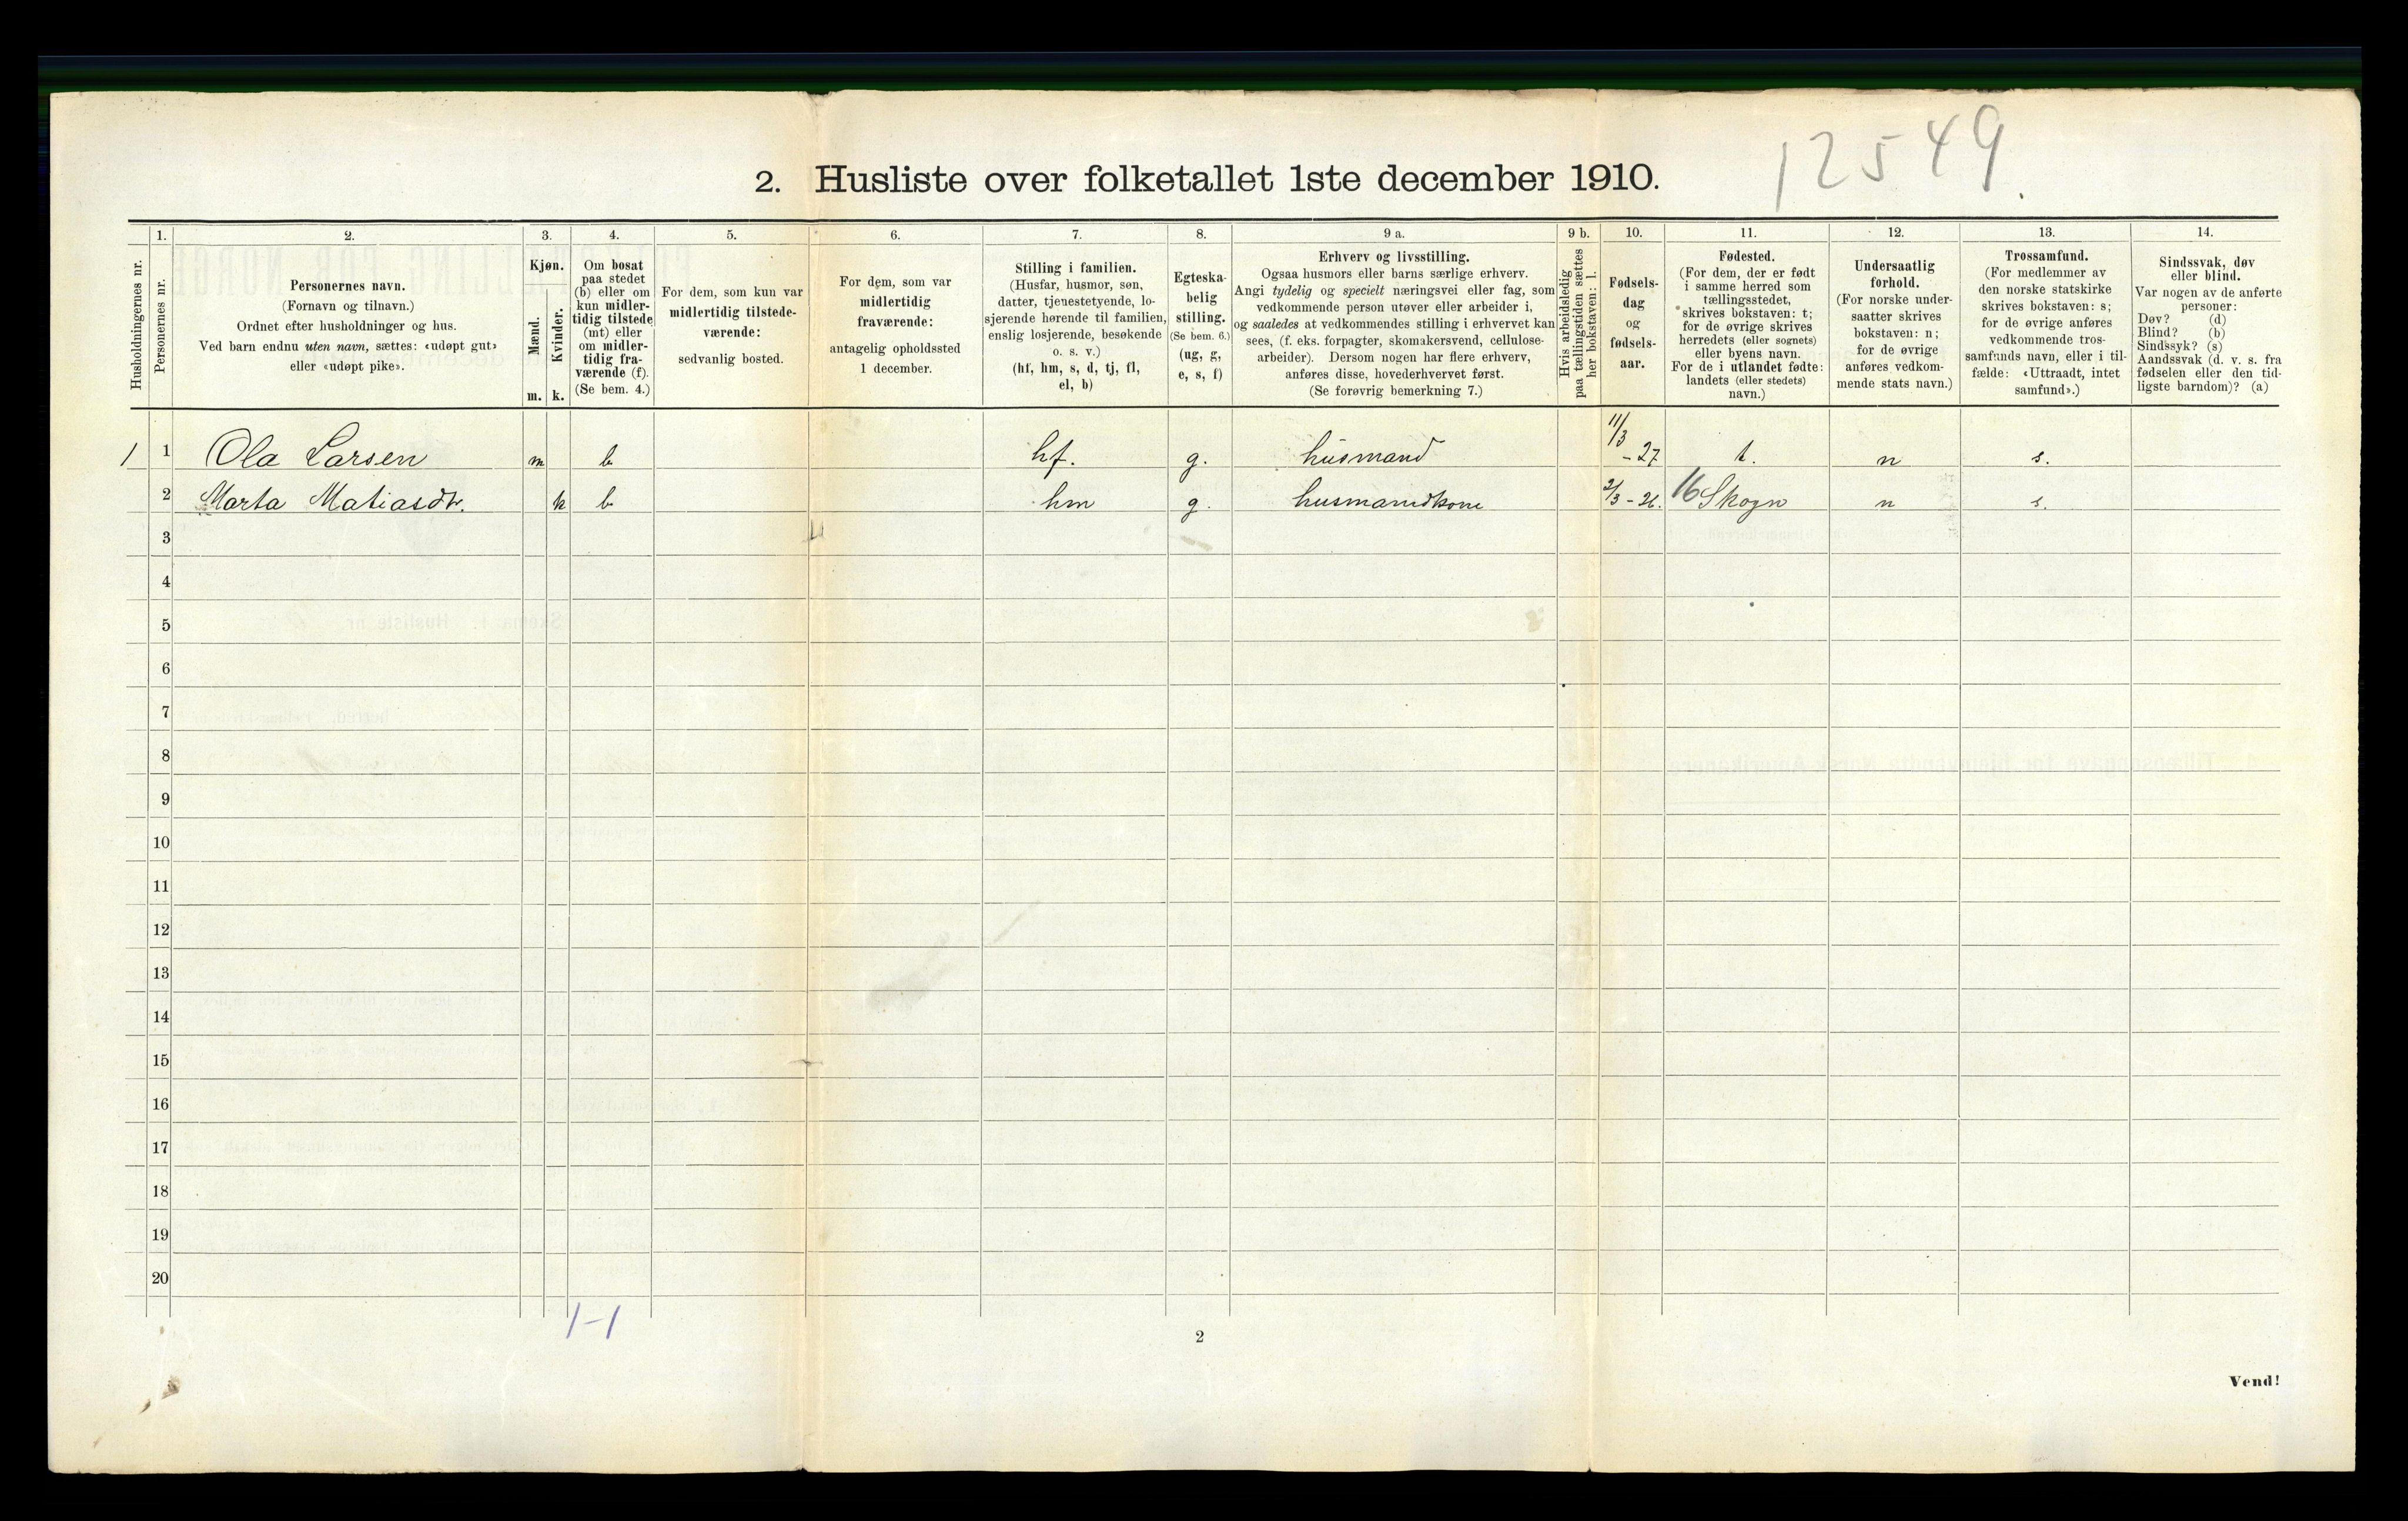 12549.
2. Husliste over folketallet 1ste december 1910.
Husholdningernes nr.
1.
Personernes nr.
2.
Personernes navn.
(Fornavn og tilnavn.)
Ordnet efter husholdninger og hus.
Ved barn endnu uten navn, sættes: «udøpt gut»
eller «udøpt pike».
3.
Kjøn.
Mænd.
Kvinder.
m. k.
4.
Om bosat
paa stedet
(b) eller om
kun midler-
tidig tilstede
(mt) eller
om midler-
tidig fra-
værende (f).
(Se bem. 4.)
5.
For dem, som kun var
midlertidig tilstede-
værende:
sedvanlig bosted.
6.
For dem, som var
midlertidig
fraværende:
antagelig opholdssted
1 december.
7.
Stilling i familien.
(Husfar, husmor, søn,
datter, tjenestetyende, lo-
sjerende hørende til familien,
enslig losjerende, besøkende
o. s. v.)
(hf, hm, s, d, tj, fl,
el, b)
8.
Egteska-
belig
stilling.
(Se bem. 6.)
(ug, g,
e, s, f)
9 a.
Erhverv og livsstilling.
Ogsaa husmors eller barns særlige erhverv.
Angi tydelig og specielt næringsvei eller fag, som
vedkommende person utøver eller arbeider i,
og saaledes at vedkommendes stilling i erhvervet kan
sees, (f. eks. forpagter, skomakersvend, cellulose-
arbeider). Dersom nogen har flere erhverv,
anføres disse, hovederhvervet først.
(Se forøvrig bemerkning 7.)
9 b.
Hvis arbeidsledig
paa tællingstiden sættes
her bokstaven: l.
10.
Fødsels-
dag
og
fødsels-
aar.
11.
Fødested.
(For dem, der er født
i samme herred som
tællingsstedet,
skrives bokstaven: t;
for de øvrige skrives
herredets (eller sognets)
eller byens navn.
For de i utlandet fødte:
landets (eller stedets)
navn.)
12.
Undersaatlig
forhold.
(For norske under-
saatter skrives
bokstaven: n;
for de øvrige
anføres vedkom-
mende stats navn.)
13.
Trossamfund.
(For medlemmer av
den norske statskirke
skrives bokstaven: s;
for de øvrige anføres
vedkommende tros-
samfunds navn, eller i til-
fælde: «Uttraadt, intet
samfund».)
14.
Sindssvak, døv
eller blind.
Var nogen av de anførte
personer:
Døv? (d)
Blind? (b)
Sindssyk? (s)
Aandssvak (d. v. s. fra
fødselen eller den tid-
ligste barndom)? (a)
1 1 Ola Larsen m b hf. g. husmand 11/3 - 27 t. n s.
2 Marta Matiasdtr. k b hm g. husmandskone 2/3 - 26. 16 Skogn n s.
3
4
5
6
7
8
9
10
11
12
13
14
15
16
17
18
19
20
1-1
2
Vend!